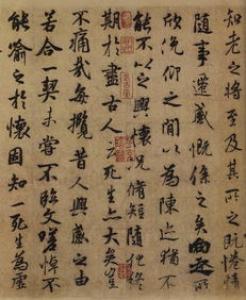 知老之將至及其所之既惓情
隨事遷感慨係之矣向之所
欣俛仰之間以為陳迹猶不
能不以之興懷況脩短隨化終
期於盡古人云死生亦大矣豈
不痛哉每攬昔人興感之由
若合一契未嘗不臨文嗟悼不
能喻之於懷固知一死生為虛